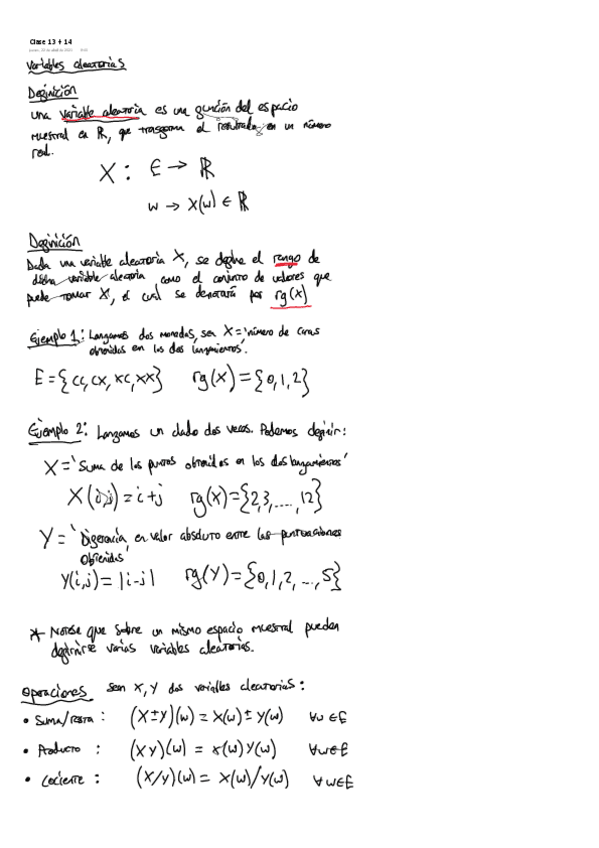 Clase 13 + 14
Variables aleatorias
Definición
Una variable aleatoria es una función del espacio
muestral en ℝ, que trasforma el resultado en un número
real.
X : E → ℝ
w → X(w) ∈ ℝ
Definición
Dada una variable aleatoria X, se define el rango de
dicha variable aleatoria como el conjunto de valores que
puede tomar X, el cual se denotará por rg(X)
Ejemplo 1: Lanzamos dos monedas, sea X = 'número de caras
obtenidas en los dos lanzamientos'.
E = {CC, CX, XC, XX} rg(X) = {0,1,2}
Ejemplo 2: Lanzamos un dado dos veces. Podemos definir:
X = 'Suma de los puntos obtenidos en los dos lanzamientos'
X(i,j) = i+j rg(X) = {2,3,....,12}
Y = 'Diferencia, en valor absoluto entre las puntuaciones
obtenidas'
Y(i,j) = |i-j| rg(Y) = {0,1,2,...,5}
* Notese que sobre un mismo espacio muestral pueden
definirse varias variables aleatorias.
Operaciones Sean X, Y dos variables aleatorias:
• Suma/resta : (X±Y)(w) = X(w) ± Y(w) ∀w∈E
• Producto : (XY)(w) = X(w) Y(w) ∀w∈E
• Cociente : (X/Y)(w) = X(w)/Y(w) ∀w∈E